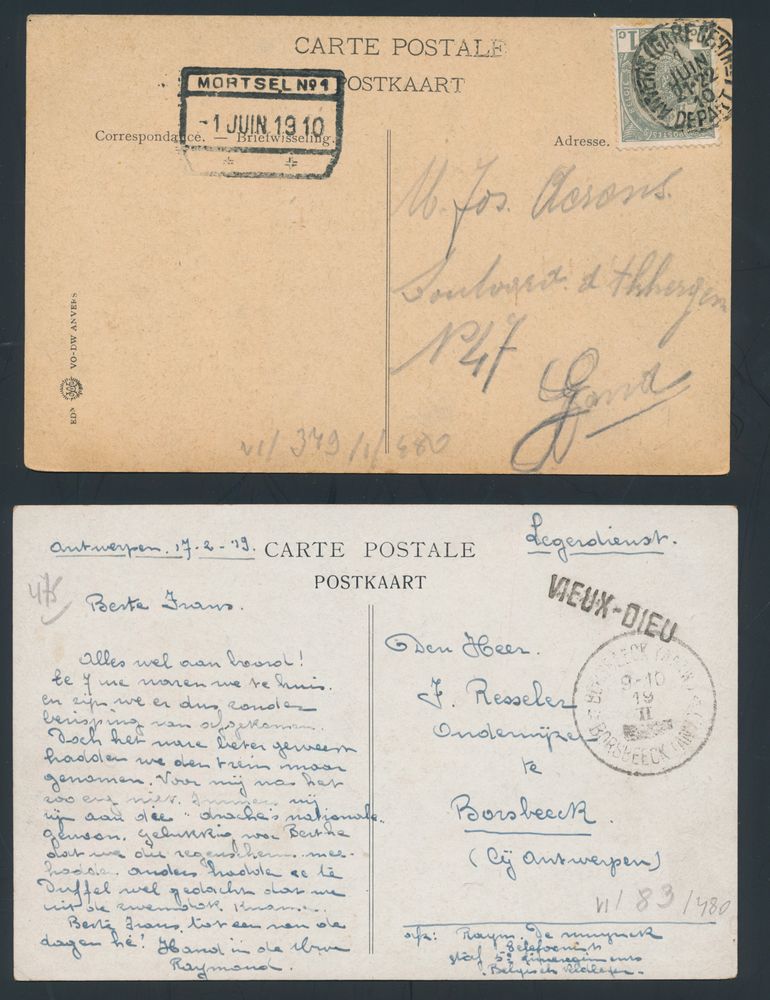 CARTE POSTALE
POSTKAART
MORTSEL No 1
-1 JUIN 1910
Correspondance. — Briefwisseling.
Adresse.
1
JUIN
10
DEPART
M. Jos.
N 47
Gand
EDN VO-DW ANVERS
VI/ 379/1/480
Antwerpen. 17-2-39.
CARTE POSTALE
POSTKAART
Legerdienst.
475
VIEUX-DIEU
Beste Frans.
BORSBEECK (ANTW.)
9-10
19
II
BORSBEECK (ANTW.)
Alles wel aan boord!
te 7 ure waren we te huis.
en zijn we er dus zonder
berisping van afgekomen.
Doch het ware beter geweest
hadden we den trein maar
genomen. Voor mij was het
zoo erg niet. Immers wij
zijn aan dee "drache's nationale"
gewoon. Gelukkig voor Berthe
dat we die regenscherm mee-
hadde. anders hadde ze te
Duffel wel gedacht dat we
uit de zwemdok
Beste Frans, tot een van de
dagen hé! Hand in de
Raymond.
Den Heer.
J. Resseler
Onderwijzer
te
Borsbeeck.
(Bij Antwerpen)
VI/83/480
afz: Raym. De muynck
Telefonist
staf 5e linieregiment
Belgisch